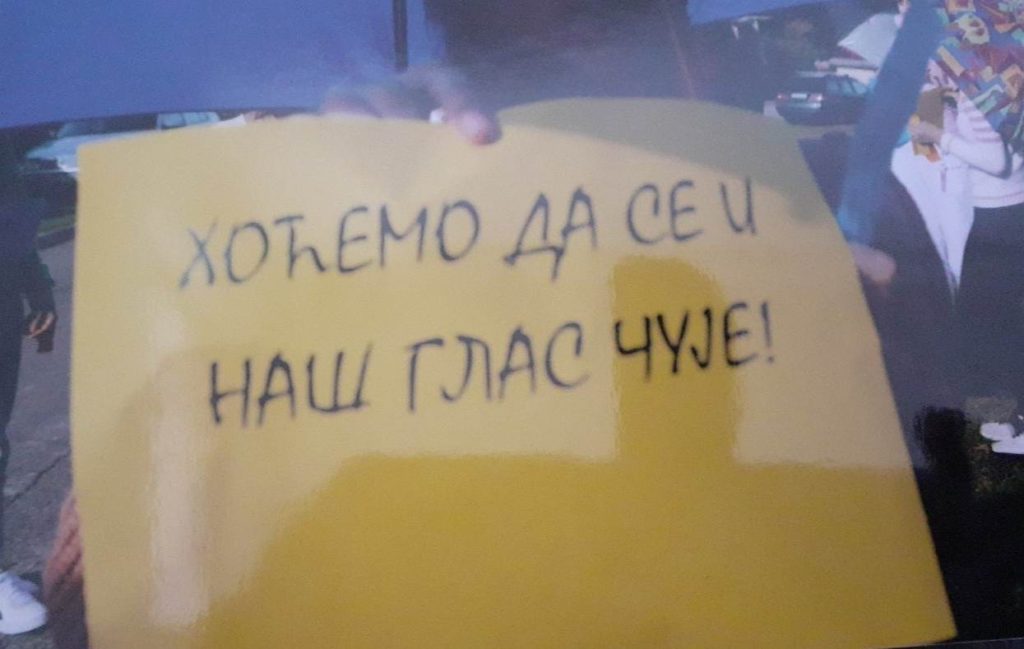 ХОЋЕМО ДА СЕ И
НАШ ГЛАС ЧУЈЕ!